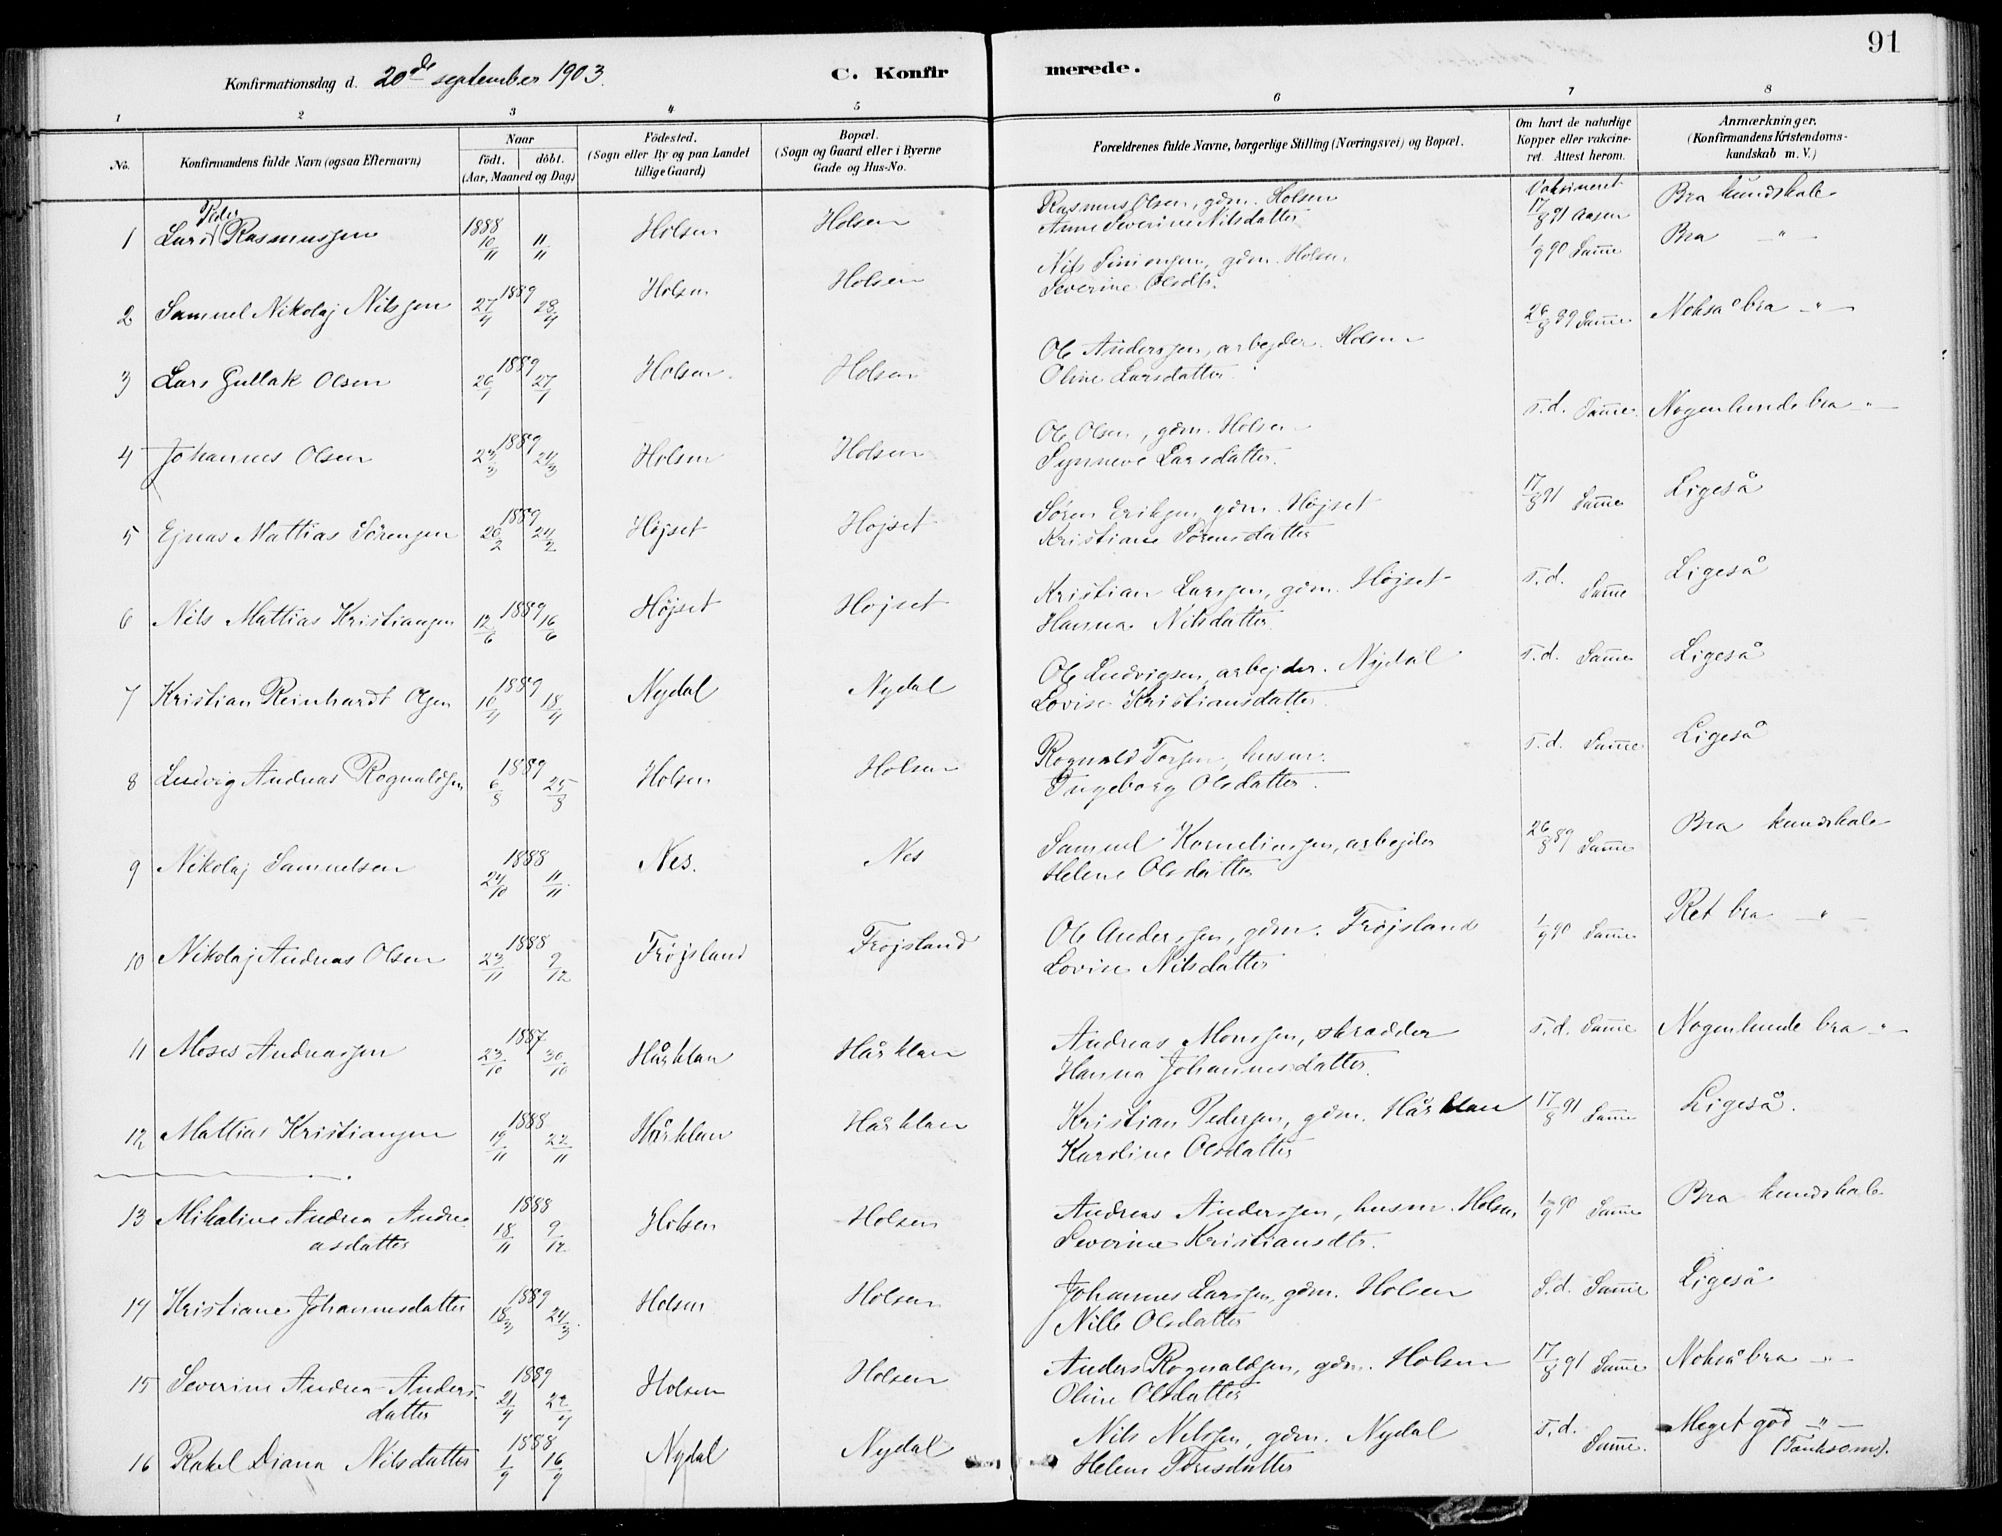 91
Konfirmationsdag d. 20de september 1903.
C. Konfirmerede.
1 2 3 4 5 6 7 8
No.
Konfirmandens fulde Navn (ogsaa Efternavn)
Naar
födt. döbt.
(Aar, Maaned og Dag)
Födested.
(Sogn eller By og paa Landet
tillige Gaard)
Bopæl.
(Sogn og Gaard eller i Byerne
Gade og Hus-No.
Forældrenes fulde Navne, borgerlige Stilling (Næringsvei) og Bopæl.
Om havt de naturlige
Kopper eller vakcine-
ret. Attest herom.
Anmærkninger.
(Konfirmandens Kristendoms-
kundskab m. V.)
1 Lars Peder Rasmussen 1888 10/11 11/11 Holsen Holsen Rasmus Olsen, gdm. Holsen Vaksineret 17/8 91 Aasen Bra kundskab
Anne Severine Nilsdatter
2 Samuel Nikolaj Nilssen 1889 27/4 28/4 Holsen Holsen Nils Simonsen, gdm. Holsen 1/9 90 Samme Bra -"-
Severine Olsdtr.
3 Lars Gullak Olsen 1889 26/1 27/1 Holsen Holsen Ole Anderssen, arbejder. Holsen 26/8 89 Samme Noksa bra -"-
Oline Larsdatter
4 Johannes Olsen 1889 23/3 24/3 Holsen Holsen Ole Olsen, gdm. Holsen S.d. Samme Nogenlunde bra -"-
Synneve Larsdatter.
5 Ejnas Mattias Sörensen 1889 20/2 24/2 Højset Højset Søren Eriksen gdm. Højset 17/8 91 Samme Ligeså
Kristiane Sörensdatter
6 Nils Mattias Kristiansen 1889 12/6 16/6 Højset Højset Kristian Larssen, gdm. Højset S.d. Samme Ligeså
Hanna Nilsdatter
7 Kristian Reinhardt Olsen 1889 10/4 18/4 Nydal Nydal Ole Ludvigsen, arbejder. Nydal S.d. Samme Ligeså
Lovise Kristiansdatter
8 Ludvig Andreas Rognaldsen 1889 6/8 25/8 Holsen Holsen Rognald Torsen, husm. S.d. Samme Ligeså
Ingeborg Olsdatter.
9 Nikolaj Samuelsen 1888 24/10 11/11 Nes. Nes Samuel Korneliussen, arbejder 26/8 89 Samme Bra kundskab
Helene Olsdatter
10 Nikolaj Andreas Olsen 1888 23/11 9/12 Frøjsland Frøjsland Ole Anderssen, gdm. Frøjsland 1/9 90 Samme Ret bra -"-
Lovise Nilsdatter
11 Moses Andreassen 1887 23/10 30/10 Hårklau Hårklau Andreas Monssen, skrædder S.d. Samme Nogenlunde bra -"-
Hanna Johannesdatter.
12 Mattias Kristiansen 1888 19/11 22/11 Hårklau Hårklau Kristian Pedersen, gdm. Hårklau 17/8 91 Samme Ligeså.
Karoline Olsdatter
13 Mikaline Andrea Andre- 1888 18/11 9/12 Holsen Holsen Andreas Anderssen, husm. Holsen 1/9 90 Samme Bra kundskab
asdatter Severine Kristiansdtr.
14 Kristiane Johannesdatter 1889 18/3 24/3 Holsen Holsen Johannes Larssen, gdm. Holsen S.d. Samme Ligeså
Nille Olsdatter
15 Severine Andrea Anders- 1889 21/4 22/4 Holsen Holsen Anders Rognaldsen, gdm. Holsen 17/8 91 Samme Nokså bra -"-
datter Oline Olsdatter
16 Rakel Diana Nilsdatter 1888 1/9 16/9 Nydal Nydal Nils Nilssen, gdm. Nydal S.d. Samme. Meget god -"-
Helene Toresdatter (Tænksom).